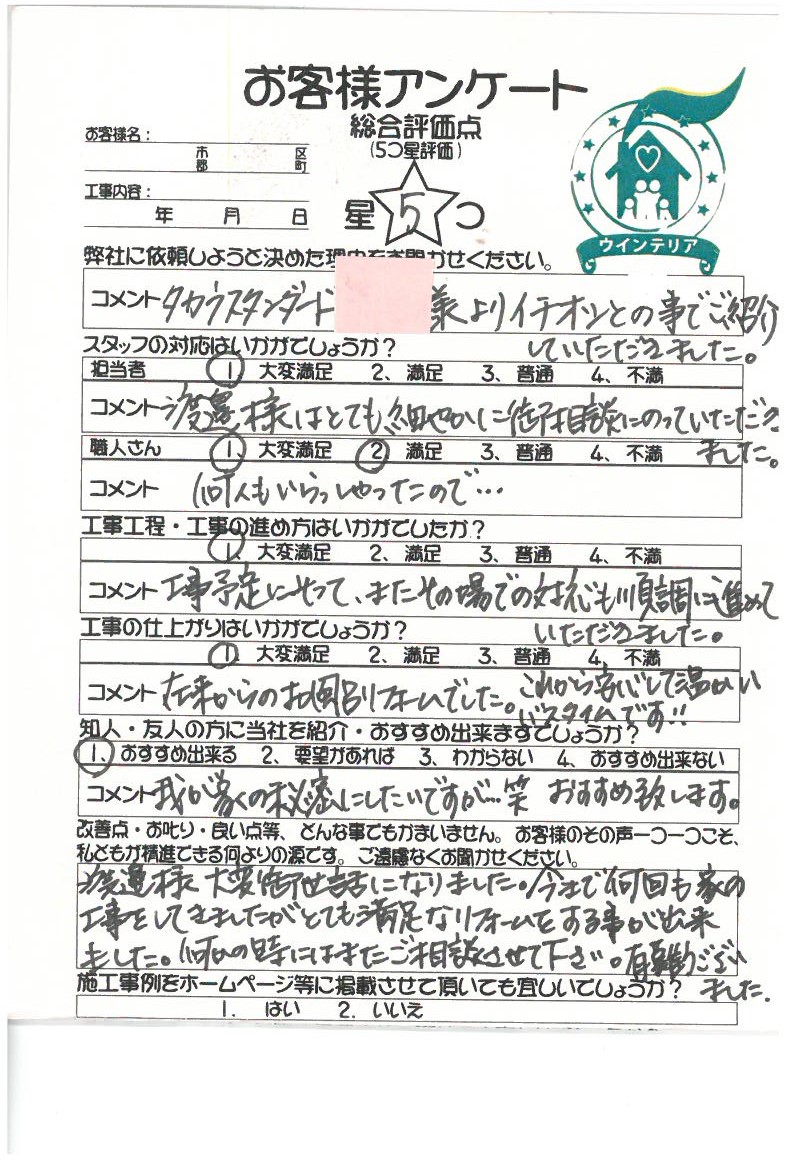 お客様アンケート
お客様名：
市 区
郡 町
工事内容：
年 月 日
総合評価点
(5つ星評価)
星 5 つ
ウインテリア
弊社に依頼しようと決めた理由をお聞かせください。
コメント タカラスタンダード 様よりイチオシとの事でご紹介
していただきました。
スタッフの対応はいかがでしょうか?
担当者 1、大変満足 2、満足 3、普通 4、不満
コメント 渡邉様はとても細やかに御相談にのっていただき
ました。
職人さん 1、大変満足 2、満足 3、普通 4、不満
コメント 何人もいらっしゃったので…
工事工程・工事の進め方はいかがでしたか?
1、大変満足 2、満足 3、普通 4、不満
コメント 工事予定にそって、またその場での対応も順調に進めて
いただきました。
工事の仕上がりはいかがでしょうか?
1、大変満足 2、満足 3、普通 4、不満
コメント 在来からのお風呂リフォームでした。これから安心して温かい
バスタイムです!!
知人・友人の方に当社を紹介・おすすめ出来ますでしょうか?
1、おすすめ出来る 2、要望があれば 3、わからない 4、おすすめ出来ない
コメント 我が家の秘密にしたいですが…笑 おすすめ致します。
改善点・お叱り・良い点等、どんな事でもかまいません。お客様のその声一つ一つこそ、
私どもが精進できる何よりの源です。ご遠慮なくお聞かせください。
渡邉様 大変御世話になりました。今まで何回も家の
工事をしてきましたがとても満足なリフォームをする事が出来
ました。何かの時にはまたご相談させて下さい。有難うござい
ました.
施工事例をホームページ等に掲載させて頂いても宜しいでしょうか?
1. はい 2. いいえ